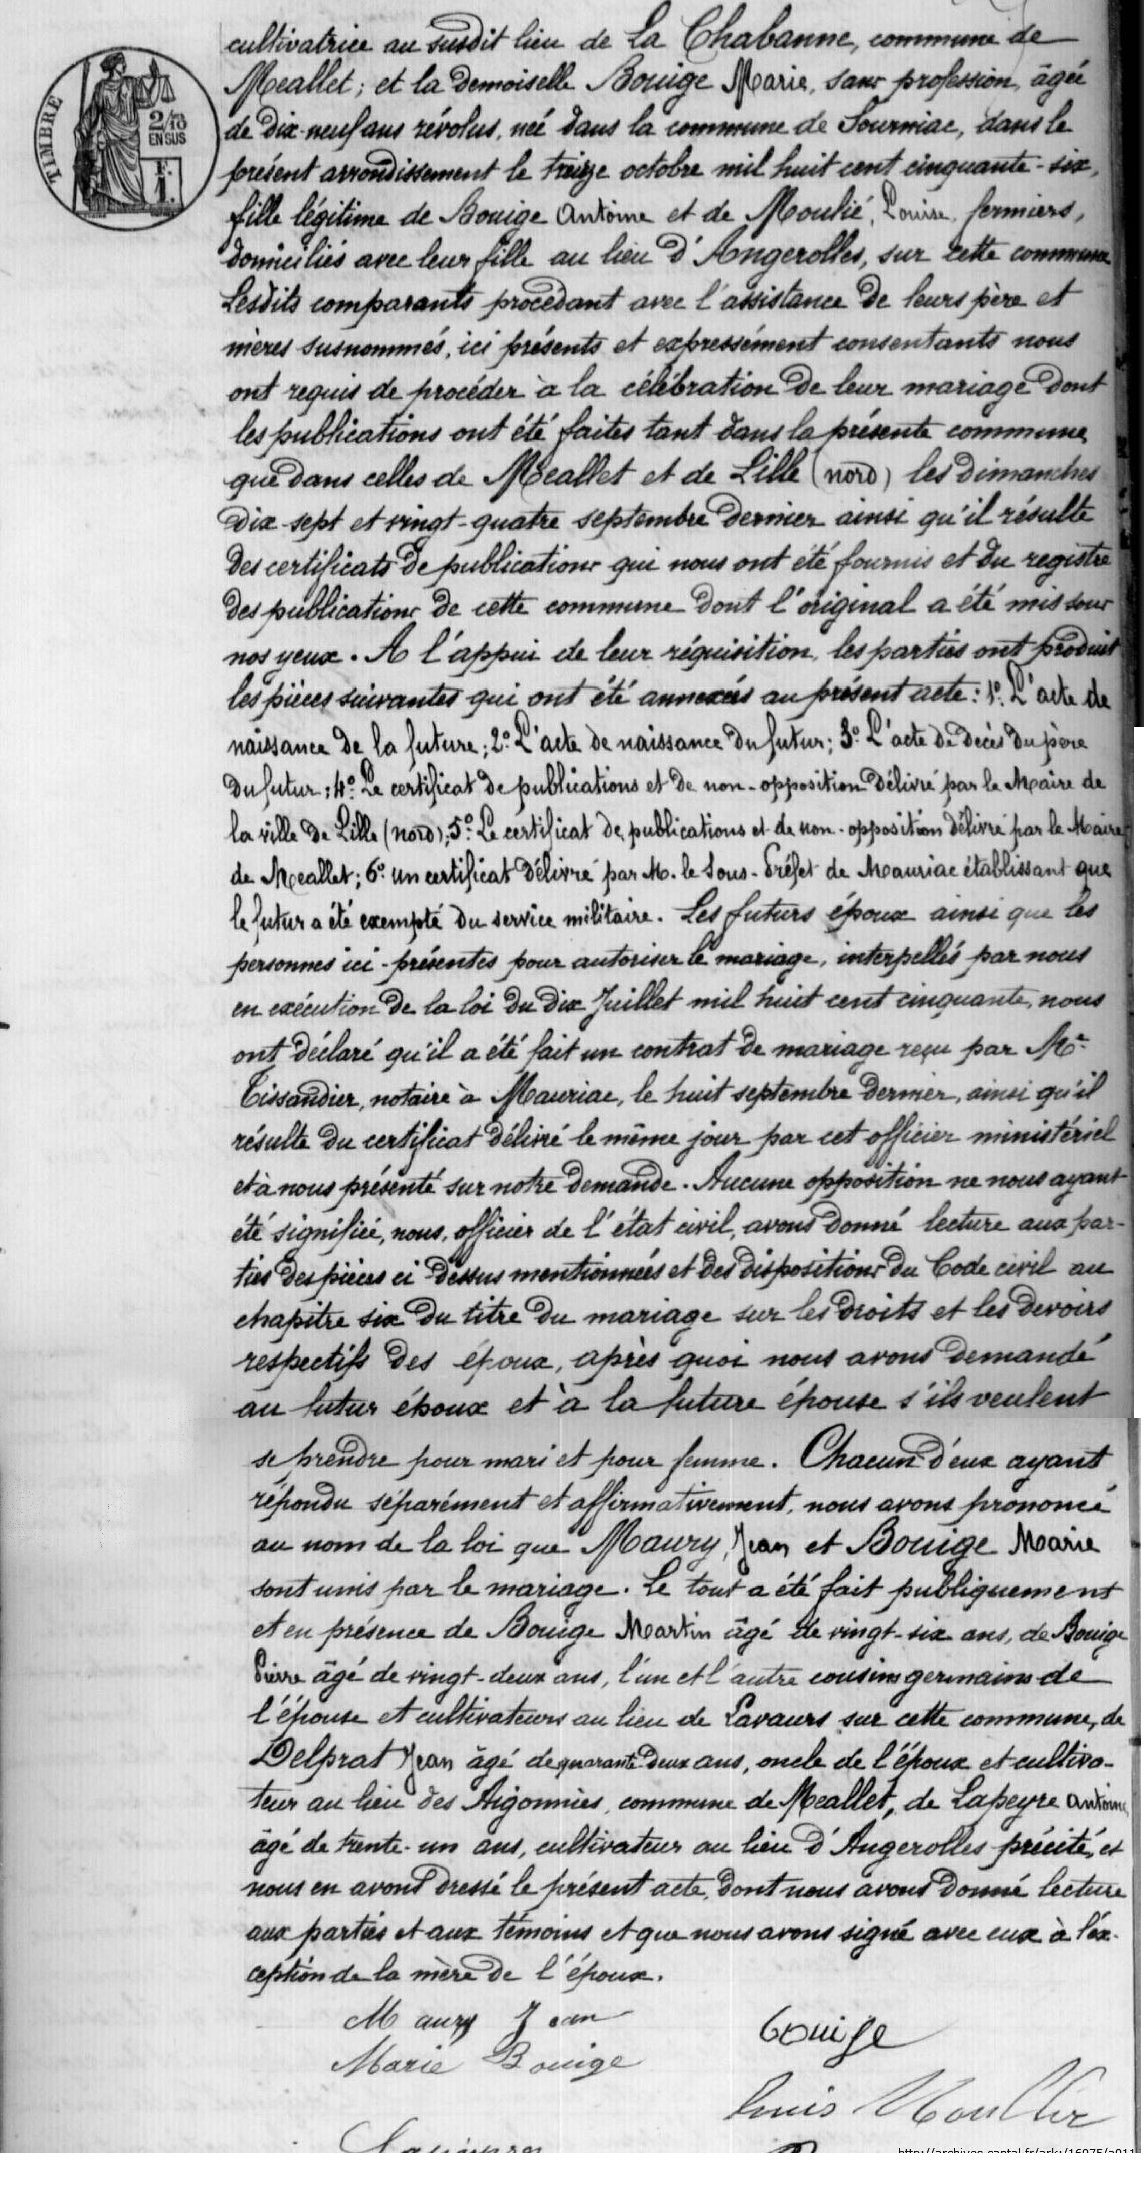 TIMBRE
2/10
EN SUS
F.
1.
cultivatrice au susdit lieu de La Chabanne, commune de
Meallet; et la demoiselle Bouige Marie, sans profession, âgée
de dix-neuf ans révolus, née dans la commune de Sourniac, dans le
présent arrondissement le treize octobre mil huit cent cinquante-six,
fille légitime de Bouige Antoine et de Moulié, Louise, fermiers,
domiciliés avec leur fille au lieu d'Angerolles, sur cette commune
Lesdits comparants procédant avec l'assistance de leurs père et
mères susnommés, ici présents et expressément consentants nous
ont requis de procéder à la célébration de leur mariage dont
les publications ont été faites tant dans la présente commune
que dans celles de Méallet et de Lille (nord) les dimanches
dix-sept et vingt-quatre septembre dernier ainsi qu'il résulte
des certificats de publications qui nous ont été fournis et du registre
des publications de cette commune dont l'original a été mis sous
nos yeux. A l'appui de leur réquisition, les parties ont produit
les pièces suivantes qui ont été annexées au présent acte: 1º. L'acte de
naissance de la future; 2º. L'acte de naissance du futur; 3º. L'acte de décès du père
du futur; 4º. Le certificat de publications et de non-opposition délivré par le Maire de
la ville de Lille (nord); 5º. Le certificat de publications et de non-opposition délivré par le Maire
de Meallet; 6º. un certificat délivré par M. le Sous-Préfet de Mauriac établissant que
le futur a été exempté du service militaire. Les futurs époux ainsi que les
personnes ici-présentes pour autoriser le mariage, interpellés par nous
en exécution de la loi du dix Juillet mil huit cent cinquante, nous
ont déclaré qu'il a été fait un contrat de mariage reçu par Me
Tissandier, notaire à Mauriac, le huit septembre dernier, ainsi qu'il
résulte du certificat délivré le même jour par cet officier ministériel
et à nous présenté sur notre demande. Aucune opposition ne nous ayant
été signifiée, nous, officier de l'état civil, avons donné lecture aux par-
ties des pièces ci-dessus mentionnées et des dispositions du Code civil au
chapitre six du titre du mariage sur les droits et les devoirs
respectifs des époux, après quoi nous avons demandé
au futur époux et à la future épouse s'ils veulent
se prendre pour mari et pour femme. Chacun d'eux ayant
répondu séparément et affirmativement, nous avons prononcé
au nom de la loi que Maury, Jean et Bouige Marie
sont unis par le mariage. Le tout a été fait publiquement
et en présence de Bouige Martin âgé de vingt-six ans, de Bouige
Pierre âgé de vingt-deux ans, l'un et l'autre cousins germains de
l'épouse et cultivateurs au lieu de Lavaurs sur cette commune, de
Delprat Jean âgé de quarante deux ans, oncle de l'époux et cultiva-
teur au lieu des Aigonnies, commune de Meallet, de Lapeyre antoine
âgé de trente-un ans, cultivateur au lieu d'Angerolles précité, et
nous en avons dressé le présent acte, dont nous avons donné lecture
aux parties et aux témoins et que nous avons signé avec eux à l'ex-
ception de la mère de l'époux.
Maury Jean
Bouige
Marie Bouige